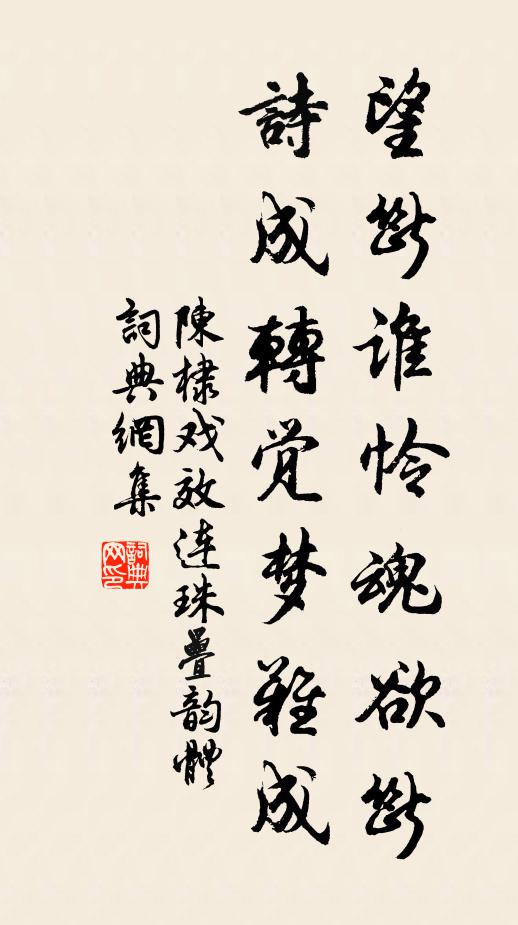 望斷谁怜魂欲斷
詩成轉觉梦難成
陳棣戏效连珠疊韵體
詞典網集
詞典网印